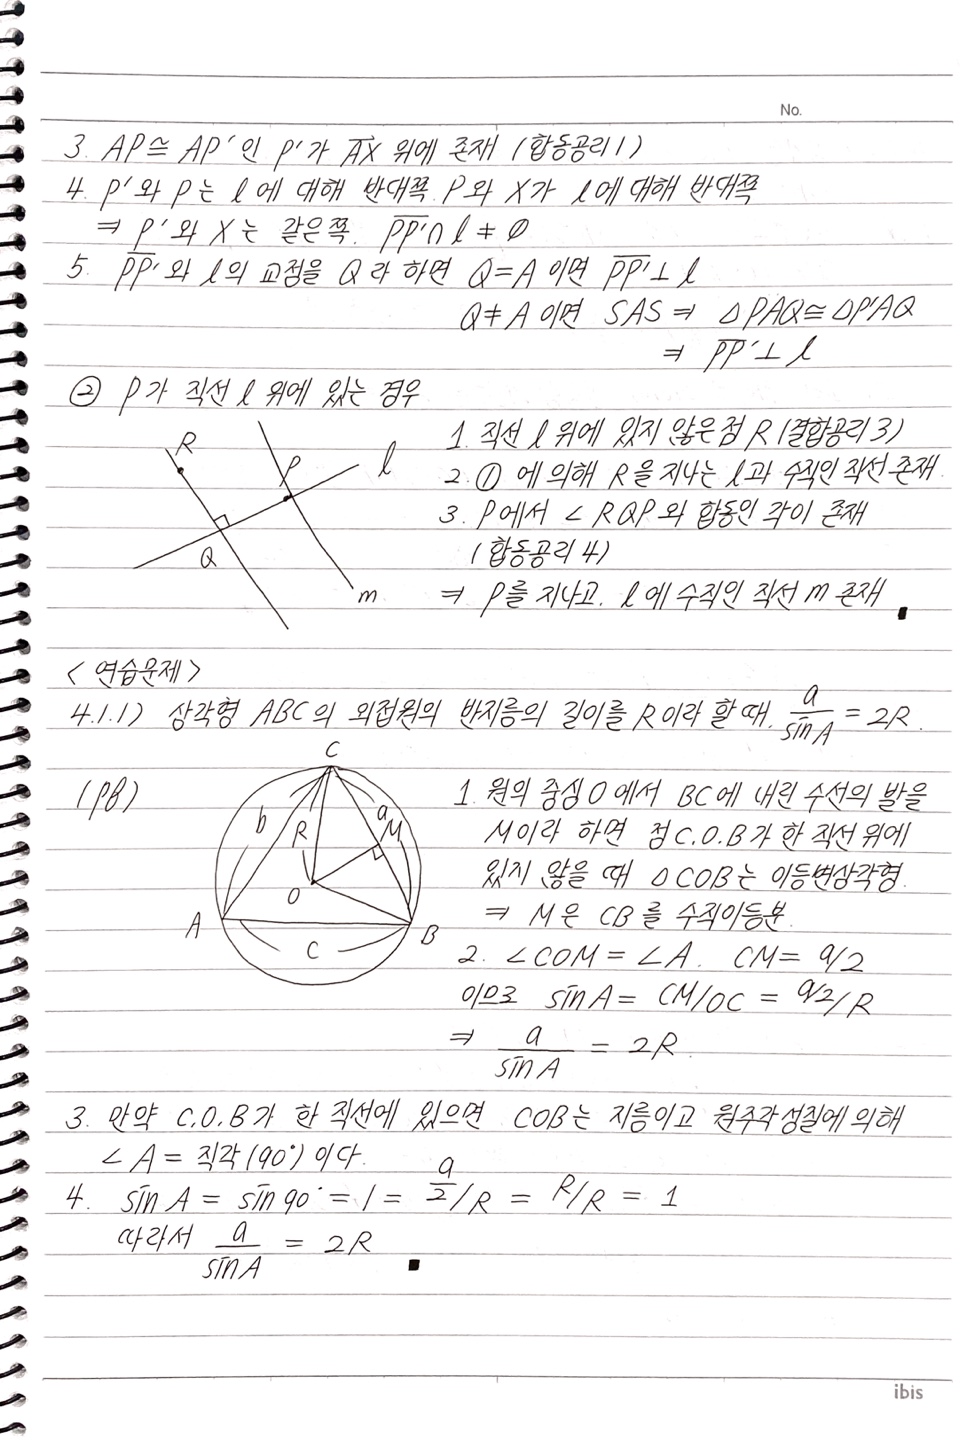 No.
3. AP≅AP′인 P′가 AX 위에 존재 (합동공리1)
4. P′와 P는 l에 대해 반대쪽. P와 X가 l에 대해 반대쪽
⇒ P′와 X는 같은쪽. PP′∩l≠∅
5. PP′와 l의 교점을 Q라 하면 Q=A이면 PP′⊥l
Q≠A이면 SAS ⇒ △PAQ≅△P′AQ
⇒ PP′⊥l
② P가 직선 l 위에 있는 경우
R
P
l
Q
m
1. 직선 l 위에 있지 않은 점 R (결합공리3)
2. ①에 의해 R을 지나는 l과 수직인 직선 존재.
3. P에서 ∠RQP와 합동인 각이 존재
(합동공리4)
⇒ P를 지나고, l에 수직인 직선 m 존재 ∎
<연습문제>
4.1.1) 삼각형 ABC의 외접원의 반지름의 길이를 R이라 할때, a/sinA = 2R.
(pf)
C
b
R
a
M
O
A
B
c
1. 원의 중심 O에서 BC에 내린 수선의 발을
M이라 하면 점 C.O.B가 한 직선 위에
있지 않을 때 △COB는 이등변삼각형.
⇒ M은 CB를 수직이등분.
2. ∠COM=∠A. CM= a/2
이므로 sinA = CM/OC = a/2/R
⇒ a/sinA = 2R.
3. 만약 C.O.B가 한 직선에 있으면 COB는 지름이고 원주각성질에 의해
∠A = 직각(90°)이다.
4. sinA = sin90° = 1 = a/2/R = R/R = 1
따라서 a/sinA = 2R ∎
ibis